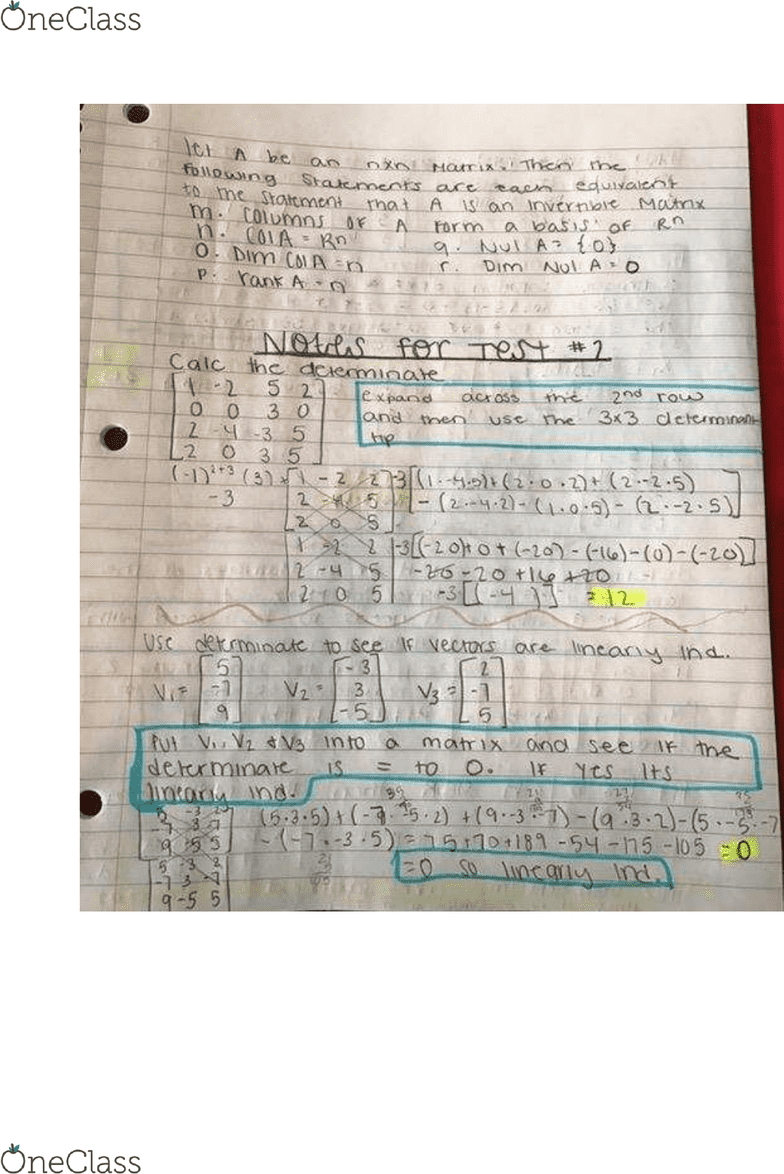 OneClass
let A be an nxn Matrix. Then the
following statements are each equivalent
to the statement that A is an invertible Matrix
m. columns of A form a basis of Rn
n. Col A = Rn q. Nul A = {0}
o. Dim Col A = n r. Dim Nul A = 0
p. rank A = n
Notes for Test #2
Calc the determinate
1 -2 5 2
0 0 3 0
2 -4 -3 5
2 0 3 5
expand across the 2nd row
and then use the 3x3 determinant
tip
(-1)²⁺³ (3) * 1 -2 2 -3[(1·-4·5)+(2·0·2)+(2·-2·5)
-3 2 -4 5 -(2·-4·2)-(1·0·5)-(2·-2·5)]
2 0 5
1 -2 2 -3[(-20)+0+(-20)-(-16)-(0)-(-20)]
2 -4 5 -20-20+16+20
2 0 5 -3[(-4)] = 12
Use determinate to see if vectors are linearly ind.
V₁ = [5 -7 9] V₂ = [-3 3 -5] V₃ = [2 -7 5]
Put V₁, V₂ & V₃ into a matrix and see if the
determinate is = to 0. If yes its
linearly ind.
5 -3 2 (5·3·5)+(-7·-5·2)+(9·-3·-7)-(9·3·2)-(5·-5·-7
-7 3 -7 -(-7·-3·5) = 75+70+189-54-175-105 = 0
9 -5 5
5 -3 2 =0 so linearly ind.
-7 3 -7
9 -5 5
OneClass